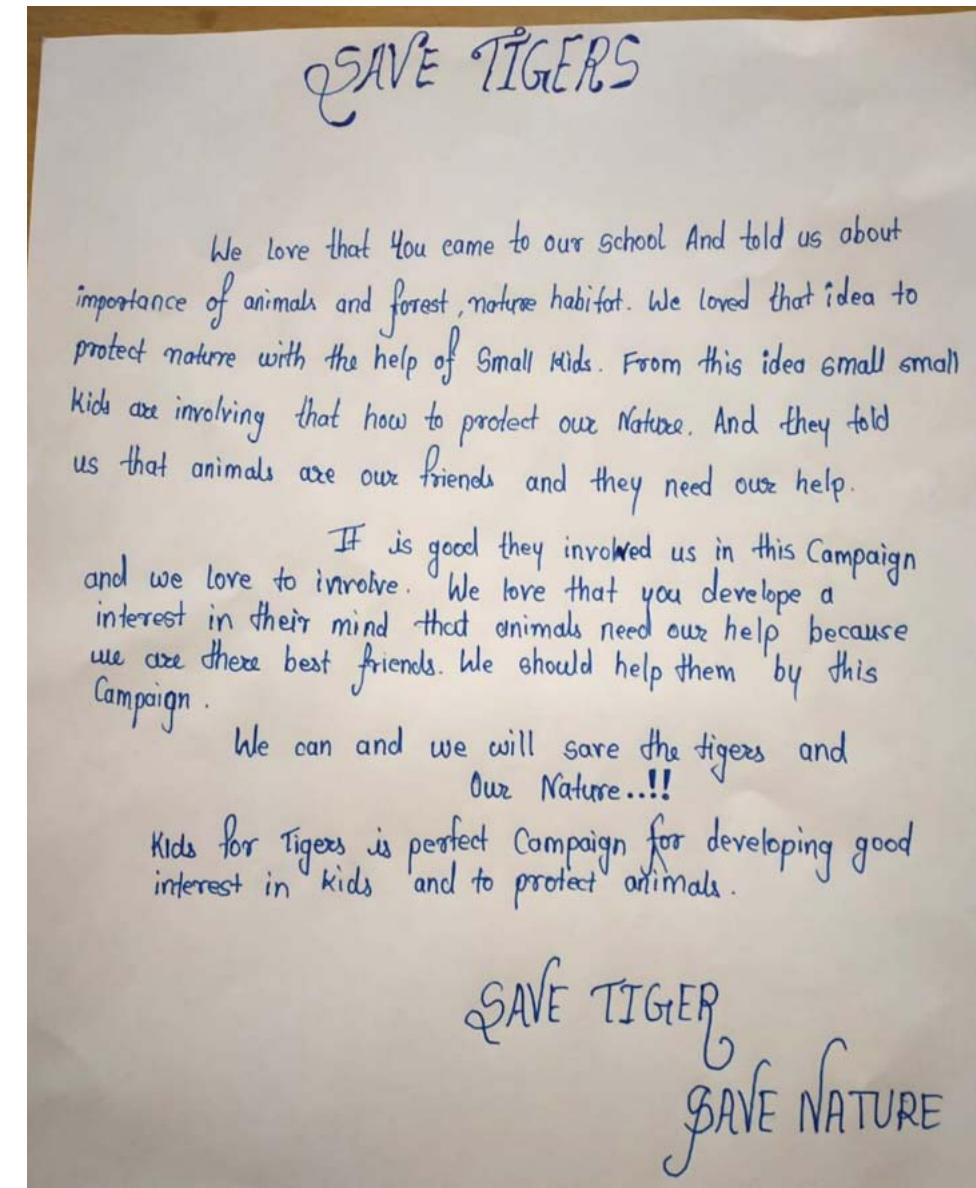 SAVE TIGERS
We love that You came to our school And told us about
importance of animals and forest, nature habitat. We loved that idea to
protect nature with the help of Small Kids. From this idea small small
Kids are involving that how to protect our Nature. And they told
us that animals are our friends and they need our help.
It is good they involved us in this Campaign
and we love to involve. We love that you develope a
interest in their mind that animals need our help because
we are there best friends. We should help them by this
Campaign.
We can and we will save the tigers and
Our Nature..!!
Kids for Tigers is perfect Campaign for developing good
interest in kids and to protect animals.
SAVE TIGER
SAVE NATURE